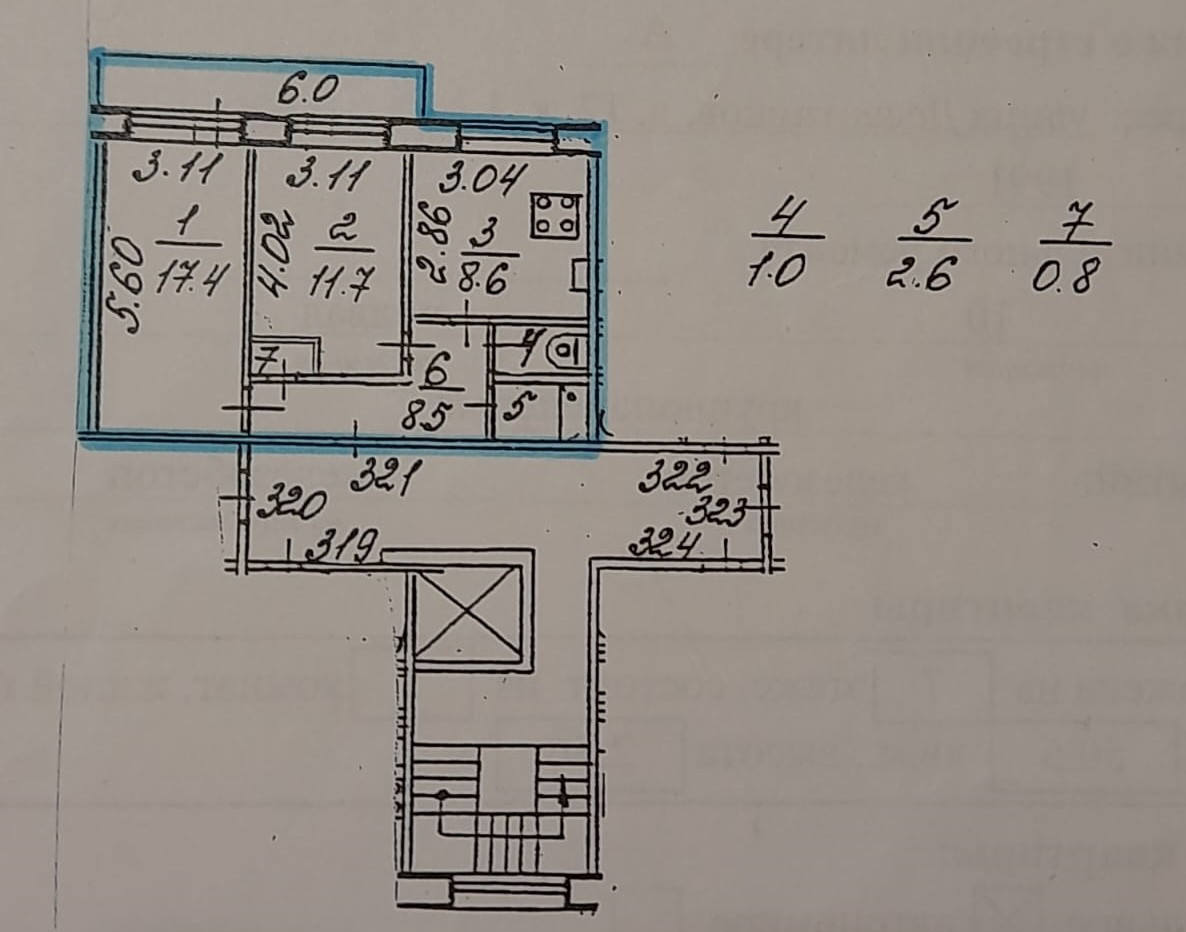 6.0
3.11 3.11 3.04
5.60 1 17.4 4.02 2 11.7 2.86 3 8.6
4 1.0 5 2.6 7 0.8
7 6 8.5 4 5
320 321 322 323
319 324